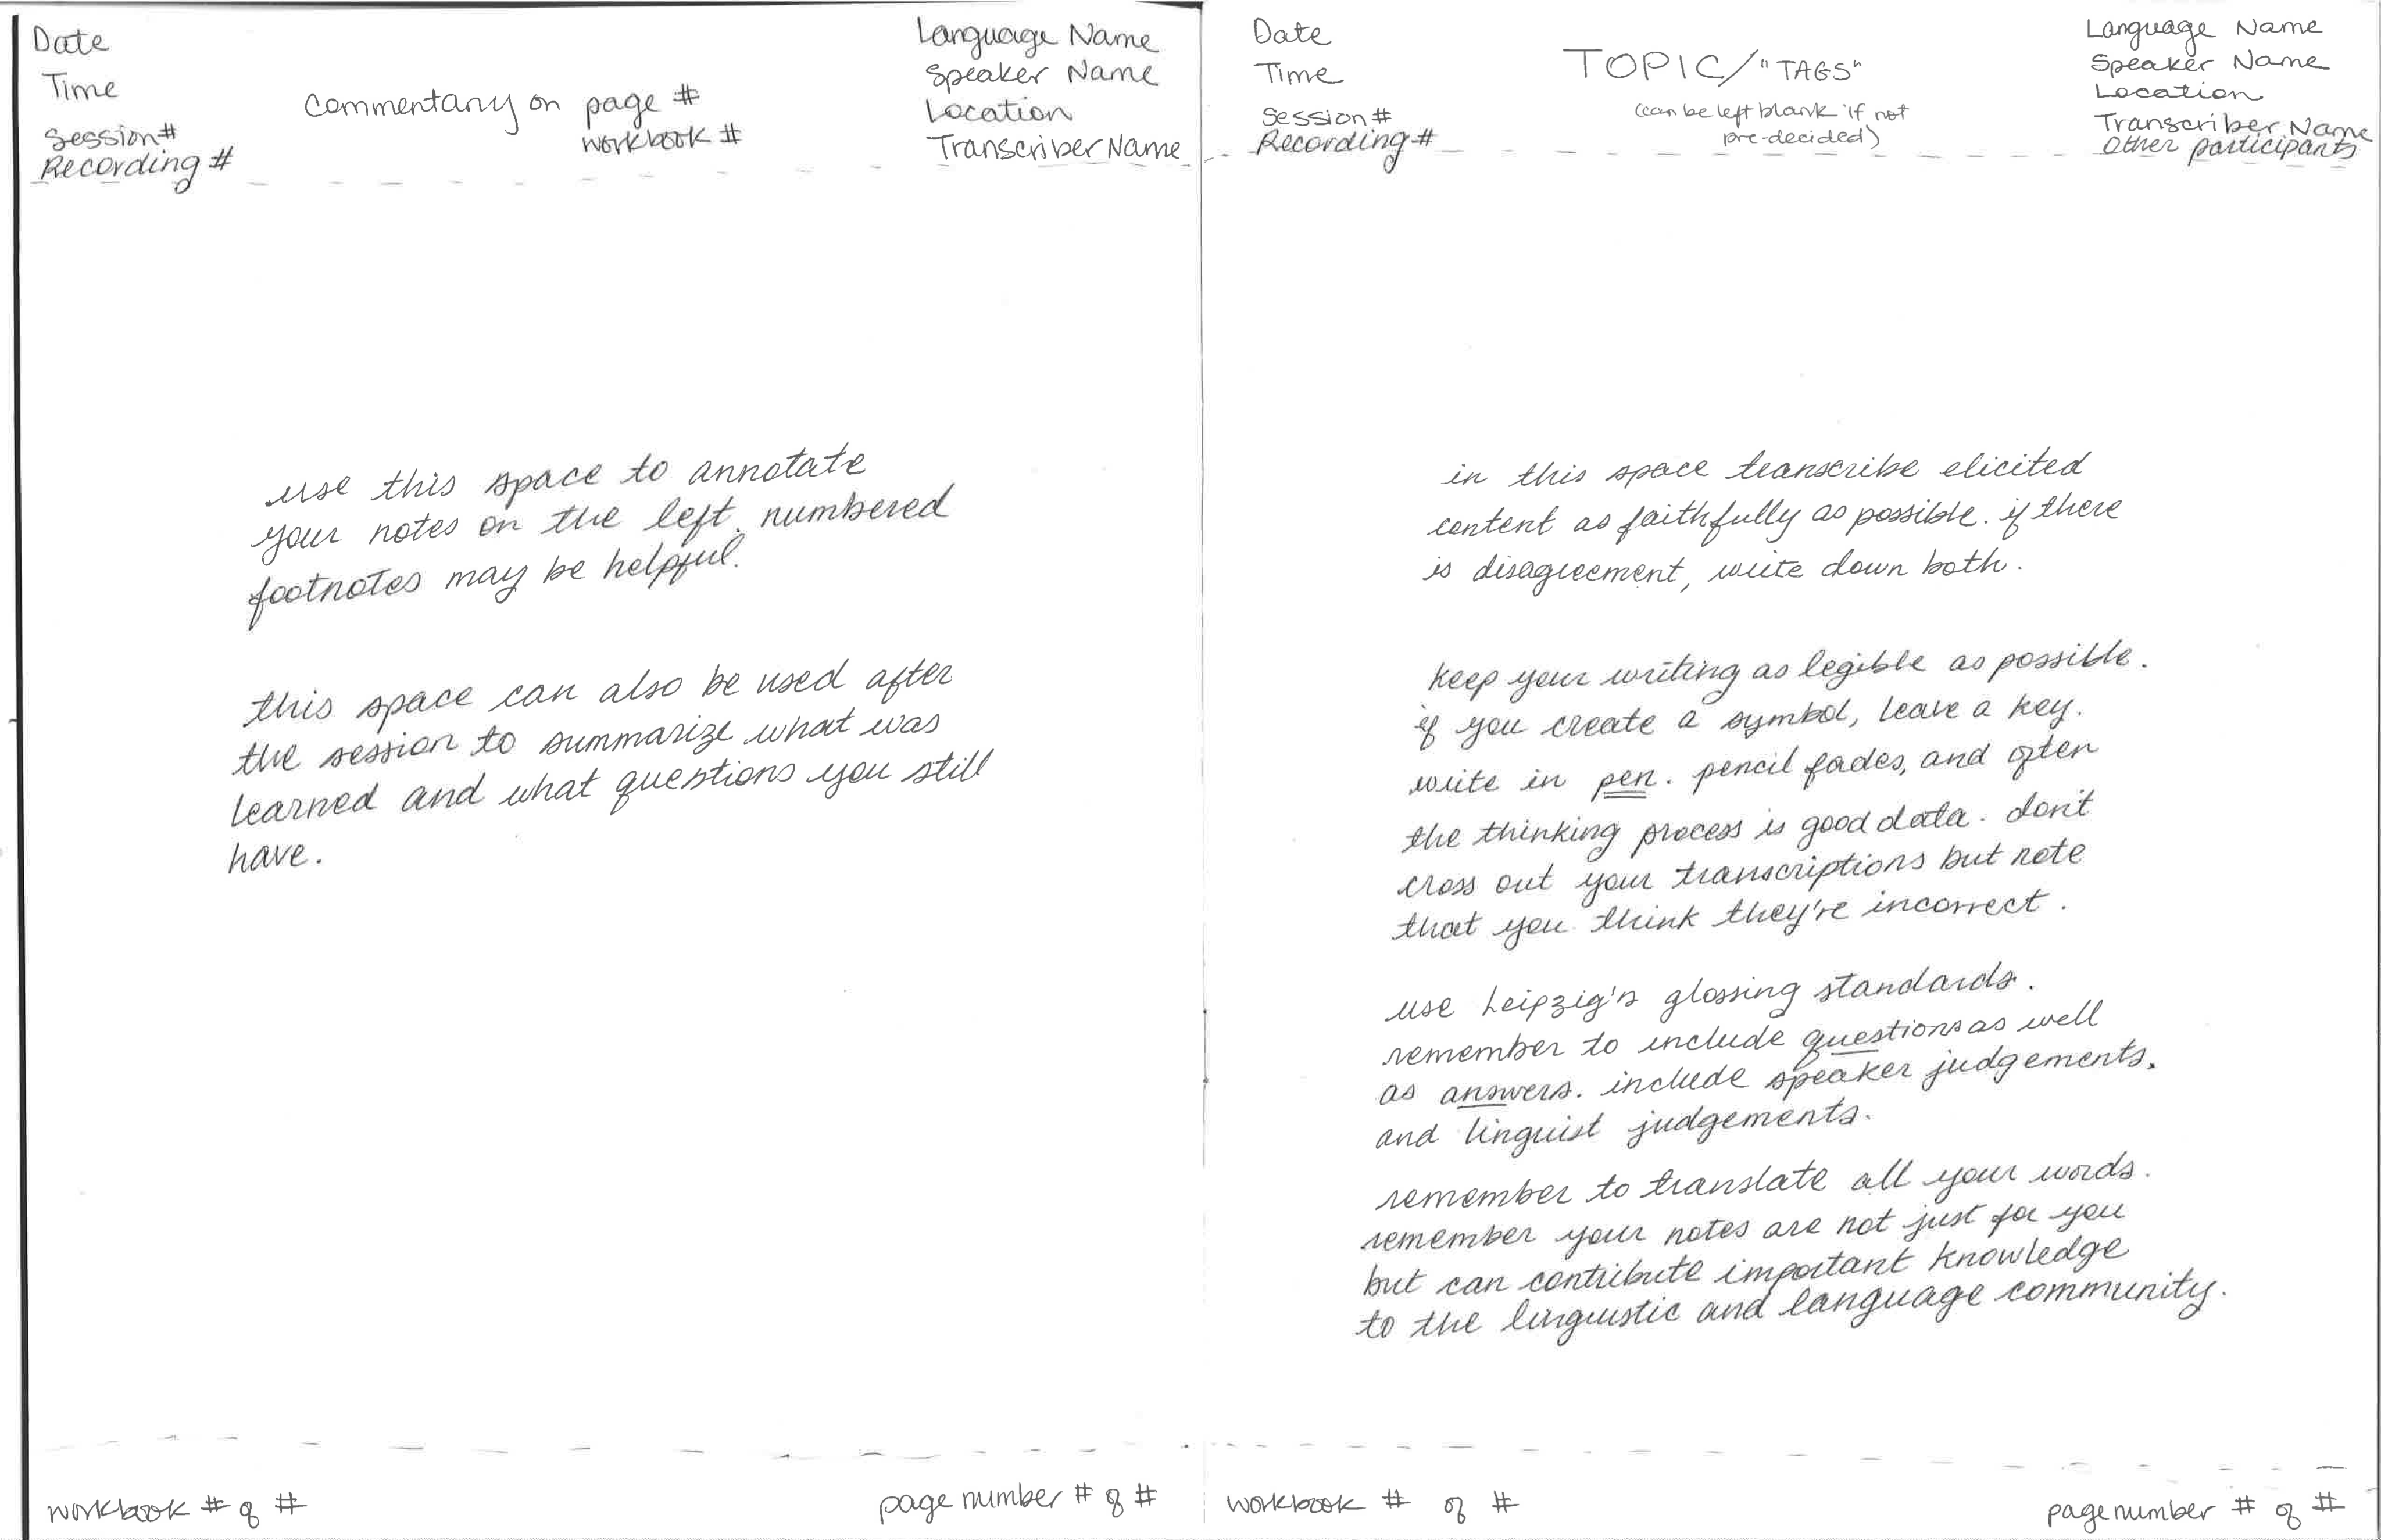 Date
Time
Session#
Recording #
Commentary on page #
workbook #
Language Name
Speaker Name
Location
Transcriber Name
use this space to annotate
your notes on the left. numbered
footnotes may be helpful.
this space can also be used after
the session to summarize what was
learned and what questions you still
have.
workbook # of #
page number # of #
Date
Time
Session #
Recording #
TOPIC/"TAGS"
(can be left blank if not
pre-decided)
Language Name
Speaker Name
Location
Transcriber Name
Other participants
in this space transcribe elicited
content as faithfully as possible. if there
is disagreement, write down both.
keep your writing as legible as possible.
if you create a symbol, leave a key.
write in pen. pencil fades, and often
the thinking process is good data. don't
cross out your transcriptions but note
that you think they're incorrect.
use Leipzig's glossing standards.
remember to include questions as well
as answers. include speaker judgements.
and linguist judgements.
remember to translate all your words.
remember your notes are not just for you
but can contribute important knowledge
to the linguistic and language community.
workbook # of #
page number # of #